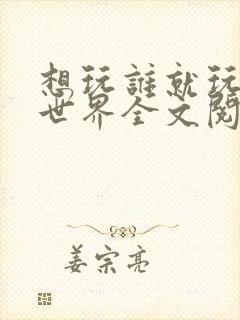 想玩誰就玩
世界全文閱
姜宗亮